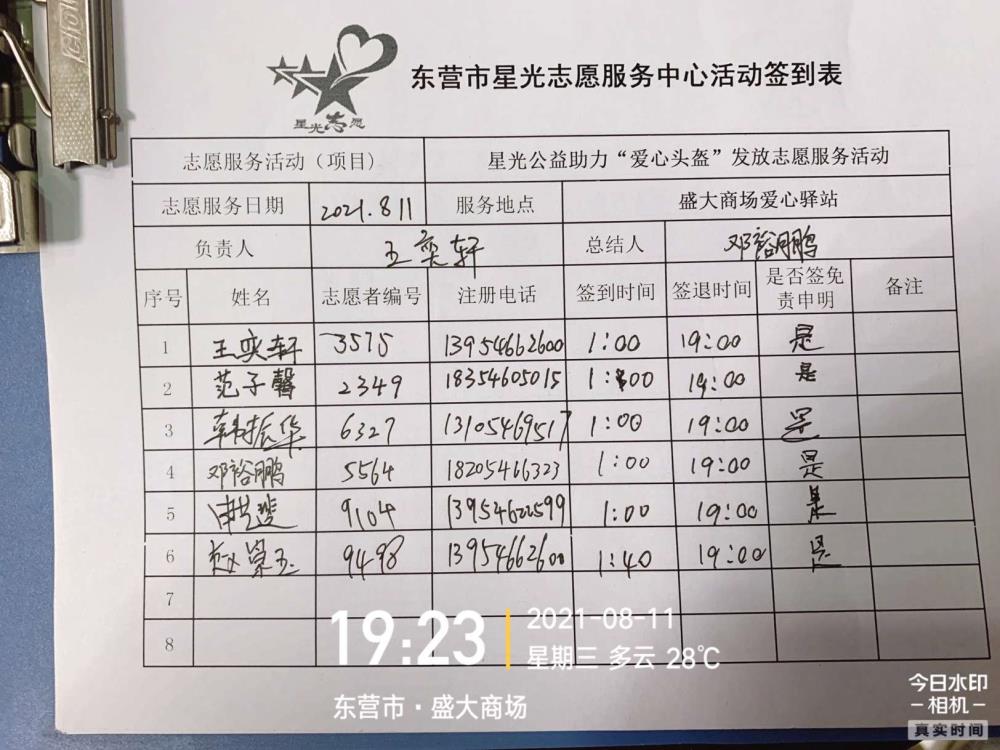 星光志愿
东营市星光志愿服务中心活动签到表
志愿服务活动（项目） 星光公益助力“爱心头盔”发放志愿服务活动
志愿服务日期 2021.8 11 服务地点 盛大商场爱心驿站
负责人 王奕轩 总结人 邓裕鹏
序号 姓名 志愿者编号 注册电话 签到时间 签退时间 是否签免责申明 备注
1 王奕轩 3575 13954662600 1:00 19:00 是
2 范子馨 2349 18354605015 1:00 19:00 是
3 韩振华 6327 13105469517 1:00 19:00 是
4 邓裕鹏 5564 18205466323 1:00 19:00 是
5 9104 13954622599 1:00 19:00 是
6 9498 13954662600 1:40 19:00 是
7
8
19:23 2021-08-11
星期三 多云 28℃
东营市·盛大商场
今日水印
-相机-
真实时间